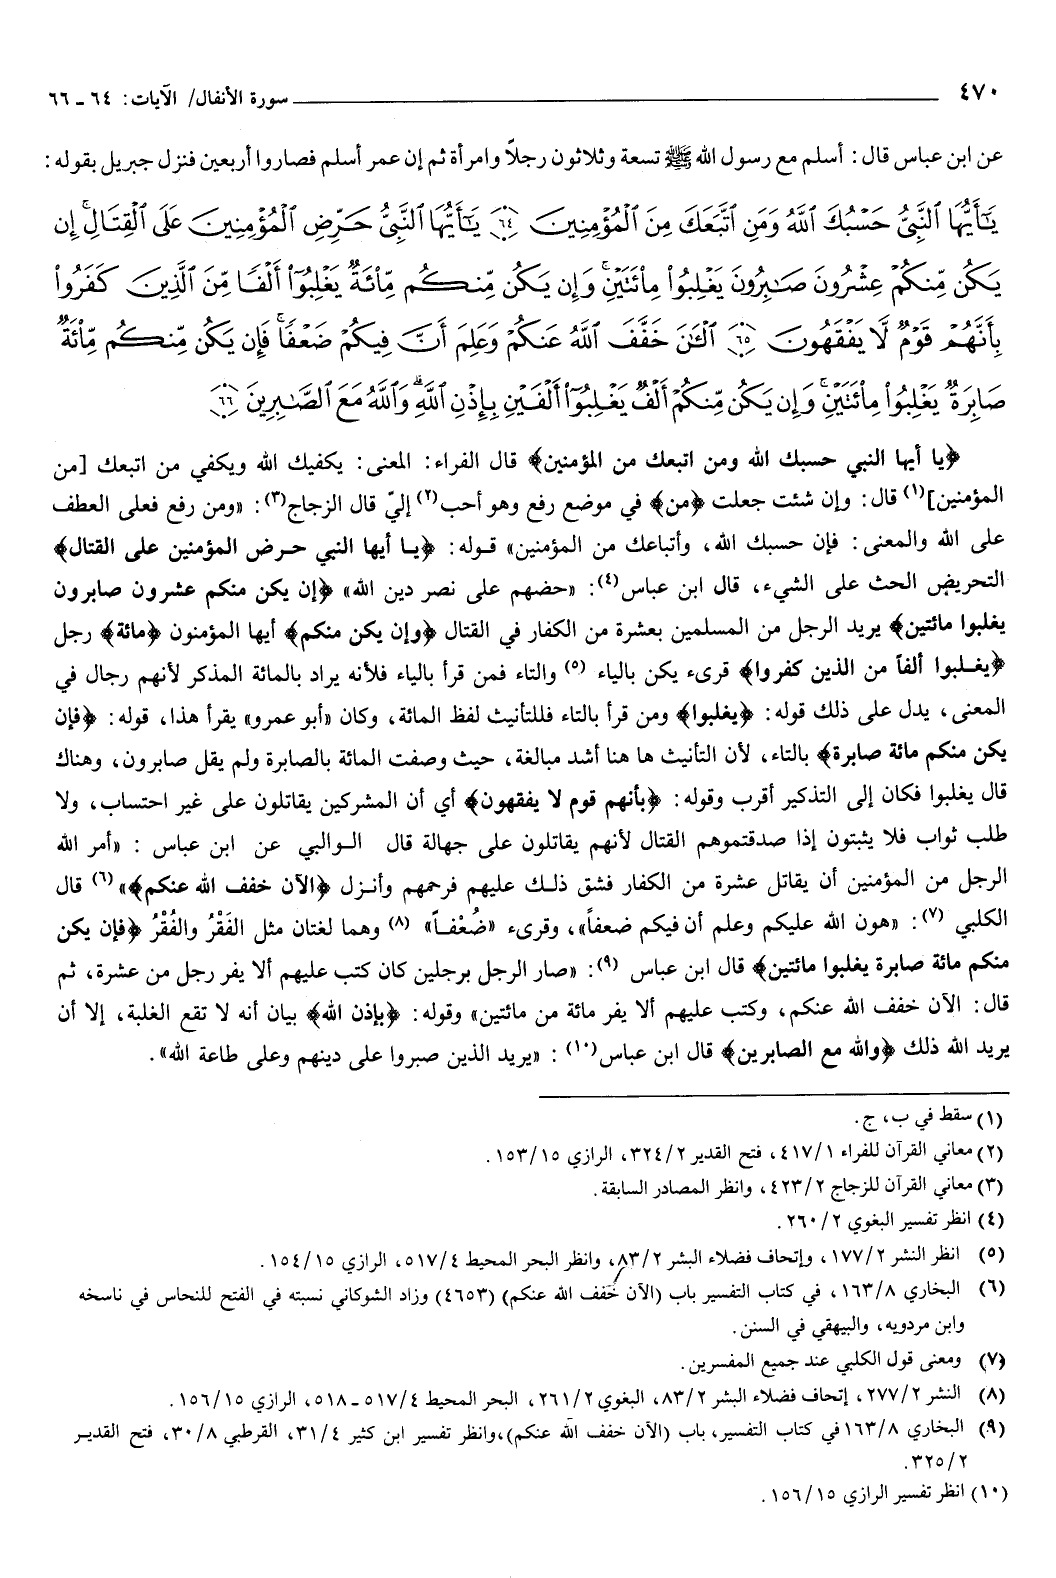 ٤٧٠ سورة الأنفال/ الآيات: ٦٤ ـ ٦٦
عن ابن عباس قال: أسلم مع رسول الله ﷺ تسعة وثلاثون رجلاً وامرأة ثم إن عمر أسلم فصاروا أربعين فنزل جبريل بقوله:
يَٰٓأَيُّهَا ٱلنَّبِيُّ حَسۡبُكَ ٱللَّهُ وَمَنِ ٱتَّبَعَكَ مِنَ ٱلۡمُؤۡمِنِينَ ٦٤ يَٰٓأَيُّهَا ٱلنَّبِيُّ حَرِّضِ ٱلۡمُؤۡمِنِينَ عَلَى ٱلۡقِتَالِۚ إِن
يَكُن مِّنكُمۡ عِشۡرُونَ صَٰبِرُونَ يَغۡلِبُواْ مِاْئَتَيۡنِۚ وَإِن يَكُن مِّنكُم مِّاْئَةٌ يَغۡلِبُوٓاْ أَلۡفًا مِّنَ ٱلَّذِينَ كَفَرُواْ
بِأَنَّهُمۡ قَوۡمٌ لَّا يَفۡقَهُونَ ٦٥ ٱلۡـَٰٔنَ خَفَّفَ ٱللَّهُ عَنكُمۡ وَعَلِمَ أَنَّ فِيكُمۡ ضَعۡفًاۚ فَإِن يَكُن مِّنكُم مِّاْئَةٌ
صَابِرَةٌ يَغۡلِبُواْ مِاْئَتَيۡنِۚ وَإِن يَكُن مِّنكُمۡ أَلۡفٌ يَغۡلِبُوٓاْ أَلۡفَيۡنِ بِإِذۡنِ ٱللَّهِۗ وَٱللَّهُ مَعَ ٱلصَّٰبِرِينَ ٦٦
﴿يا أيها النبي حسبك الله ومن اتبعك من المؤمنين﴾ قال الفراء: المعنى: يكفيك الله ويكفي من اتبعك [من
المؤمنين](١) قال: وإن شئت جعلت ﴿من﴾ في موضع رفع وهو أحب(٢) إليّ قال الزجاج(٣): «ومن رفع فعلى العطف
على الله والمعنى: فإن حسبك الله، وأتباعك من المؤمنين» قوله: ﴿يا أيها النبي حرض المؤمنين على القتال﴾
التحريض الحث على الشيء، قال ابن عباس(٤): «حضهم على نصر دين الله» ﴿إن يكن منكم عشرون صابرون
يغلبوا مائتين﴾ يريد الرجل من المسلمين بعشرة من الكفار في القتال ﴿وإن يكن منكم﴾ أيها المؤمنون ﴿مائة﴾ رجل
﴿يغلبوا ألفاً من الذين كفروا﴾ قرىء يكن بالياء (٥) والتاء فمن قرأ بالياء فلأنه يراد بالمائة المذكر لأنهم رجال في
المعنى، يدل على ذلك قوله: ﴿يغلبوا﴾ ومن قرأ بالتاء فللتأنيث لفظ المائة، وكان «أبو عمرو» يقرأ هذا، قوله: ﴿فإن
يكن منكم مائة صابرة﴾ بالتاء، لأن التأنيث ها هنا أشد مبالغة، حيث وصفت المائة بالصابرة ولم يقل صابرون، وهناك
قال يغلبوا فكان إلى التذكير أقرب وقوله: ﴿بأنهم قوم لا يفقهون﴾ أي أن المشركين يقاتلون على غير احتساب، ولا
طلب ثواب فلا يثبتون إذا صدقتموهم القتال لأنهم يقاتلون على جهالة قال الوالبي عن ابن عباس : «أمر الله
الرجل من المؤمنين أن يقاتل عشرة من الكفار فشق ذلك عليهم فرحمهم وأنزل ﴿الآن خفف الله عنكم﴾» (٦) قال
الكلبي (٧): «هون الله عليكم وعلم أن فيكم ضعفاً»، وقرىء «ضُعْفاً» (٨) وهما لغتان مثل الفَقْرُ والفُقْرُ ﴿فإن يكن
منكم مائة صابرة يغلبوا مائتين﴾ قال ابن عباس (٩): «صار الرجل برجلين كان كتب عليهم ألا يفر رجل من عشرة، ثم
قال: الآن خفف الله عنكم، وكتب عليهم ألا يفر مائة من مائتين» وقوله: ﴿بإذن الله﴾ بيان أنه لا تقع الغلبة، إلا أن
يريد الله ذلك ﴿والله مع الصابرين﴾ قال ابن عباس(١٠) : «يريد الذين صبروا على دينهم وعلى طاعة الله».
(١) سقط في ب، ج.
(٢) معاني القرآن للفراء ٤١٧/١، فتح القدير ٣٢٤/٢، الرازي ١٥٣/١٥.
(٣) معاني القرآن للزجاج ٤٢٣/٢، وانظر المصادر السابقة.
(٤) انظر تفسير البغوي ٢٦٠/٢.
(٥) انظر النشر ١٧٧/٢، وإتحاف فضلاء البشر ٨٣/٢، وانظر البحر المحيط ٥١٧/٤، الرازي ١٥٤/١٥.
(٦) البخاري ١٦٣/٨، في كتاب التفسير باب (الآن خفف الله عنكم) (٤٦٥٣) وزاد الشوكاني نسبته في الفتح للنحاس في ناسخه
وابن مردويه، والبيهقي في السنن.
(٧) ومعنى قول الكلبي عند جميع المفسرين.
(٨) النشر ٢٧٧/٢، إتحاف فضلاء البشر ٨٣/٢، البغوي ٢٦١/٢، البحر المحيط ٥١٧/٤ ـ ٥١٨، الرازي ١٥٦/١٥.
(٩) البخاري ١٦٣/٨ في كتاب التفسير، باب (الآن خفف الله عنكم)، وانظر تفسير ابن كثير ٣١/٤، القرطبي ٣٠/٨، فتح القدير
٣٢٥/٢.
(١٠) انظر تفسير الرازي ١٥٦/١٥.